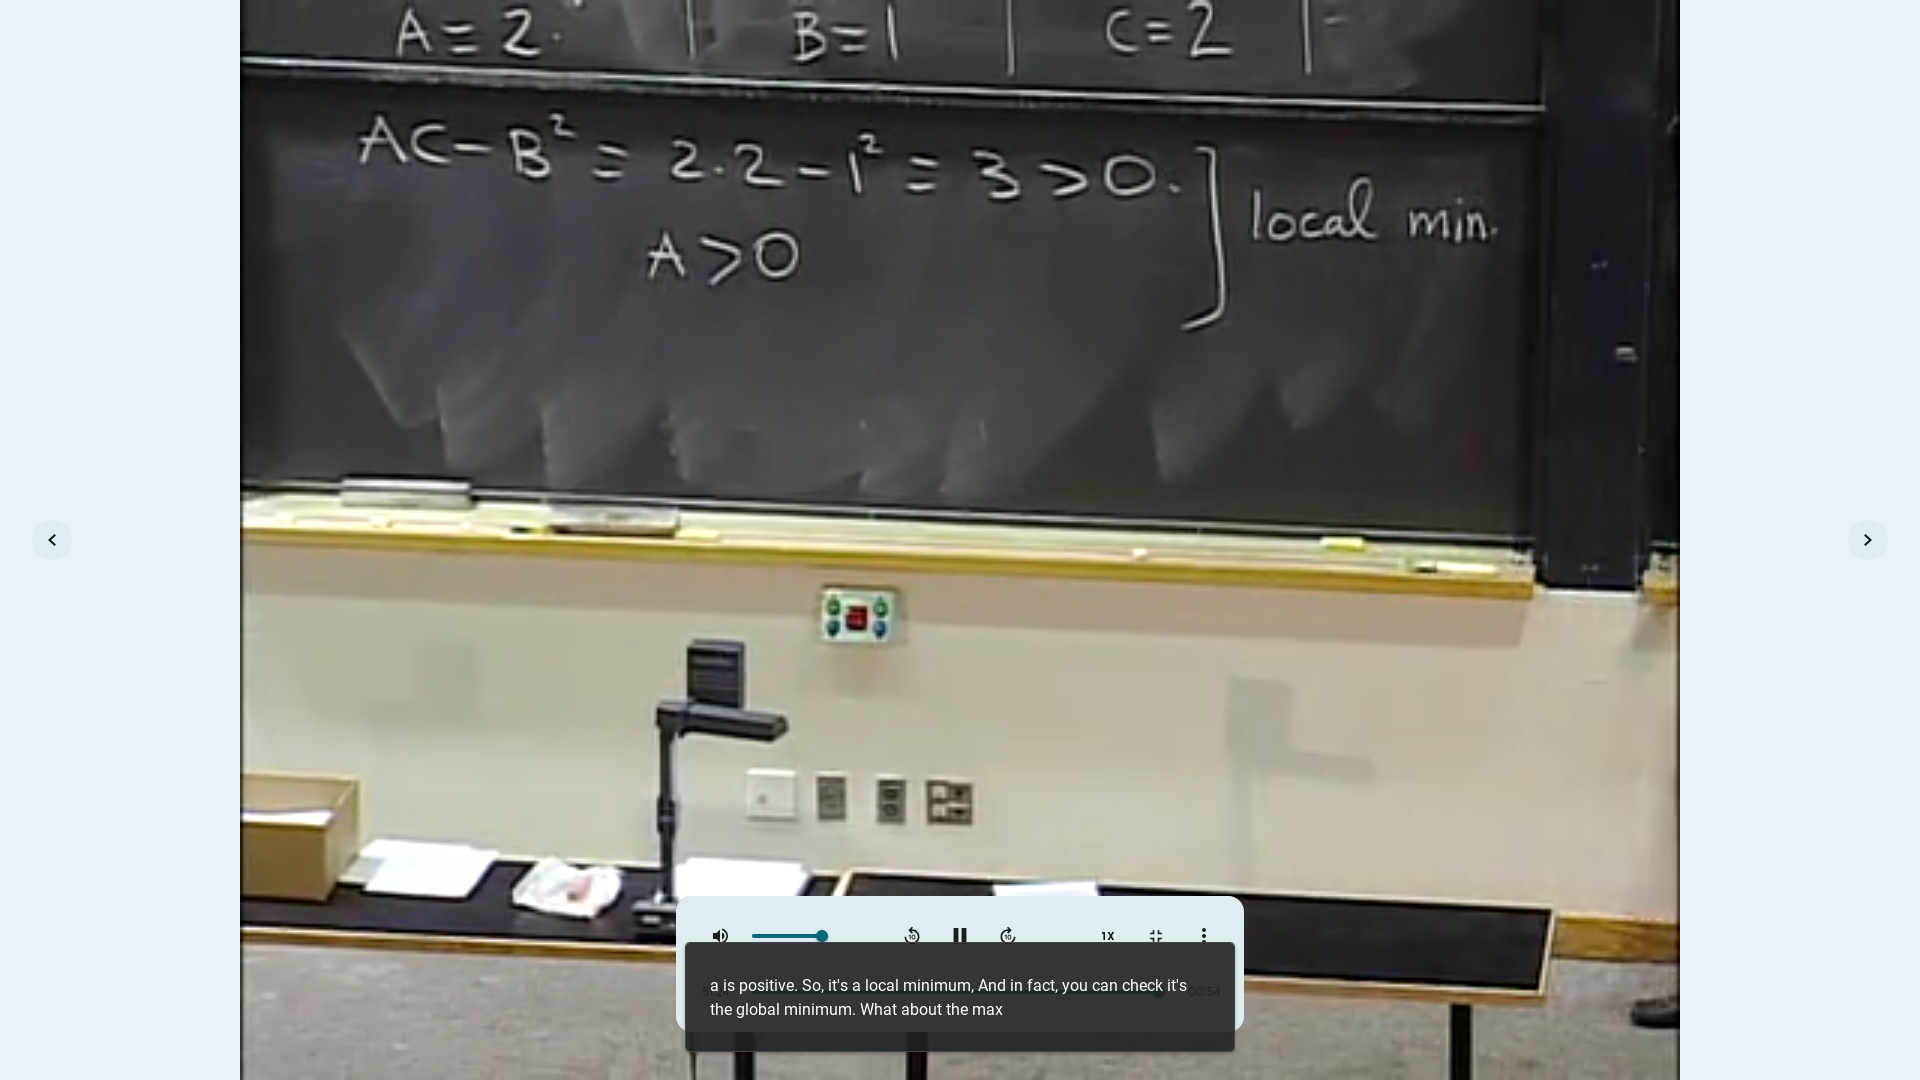 A = 2. | B = 1 | C = 2 |
AC - B² = 2·2 - 1² = 3 > 0. ] local min.
A > 0
10 10 1X
a is positive. So, it's a local minimum, And in fact, you can check it's
the global minimum. What about the max